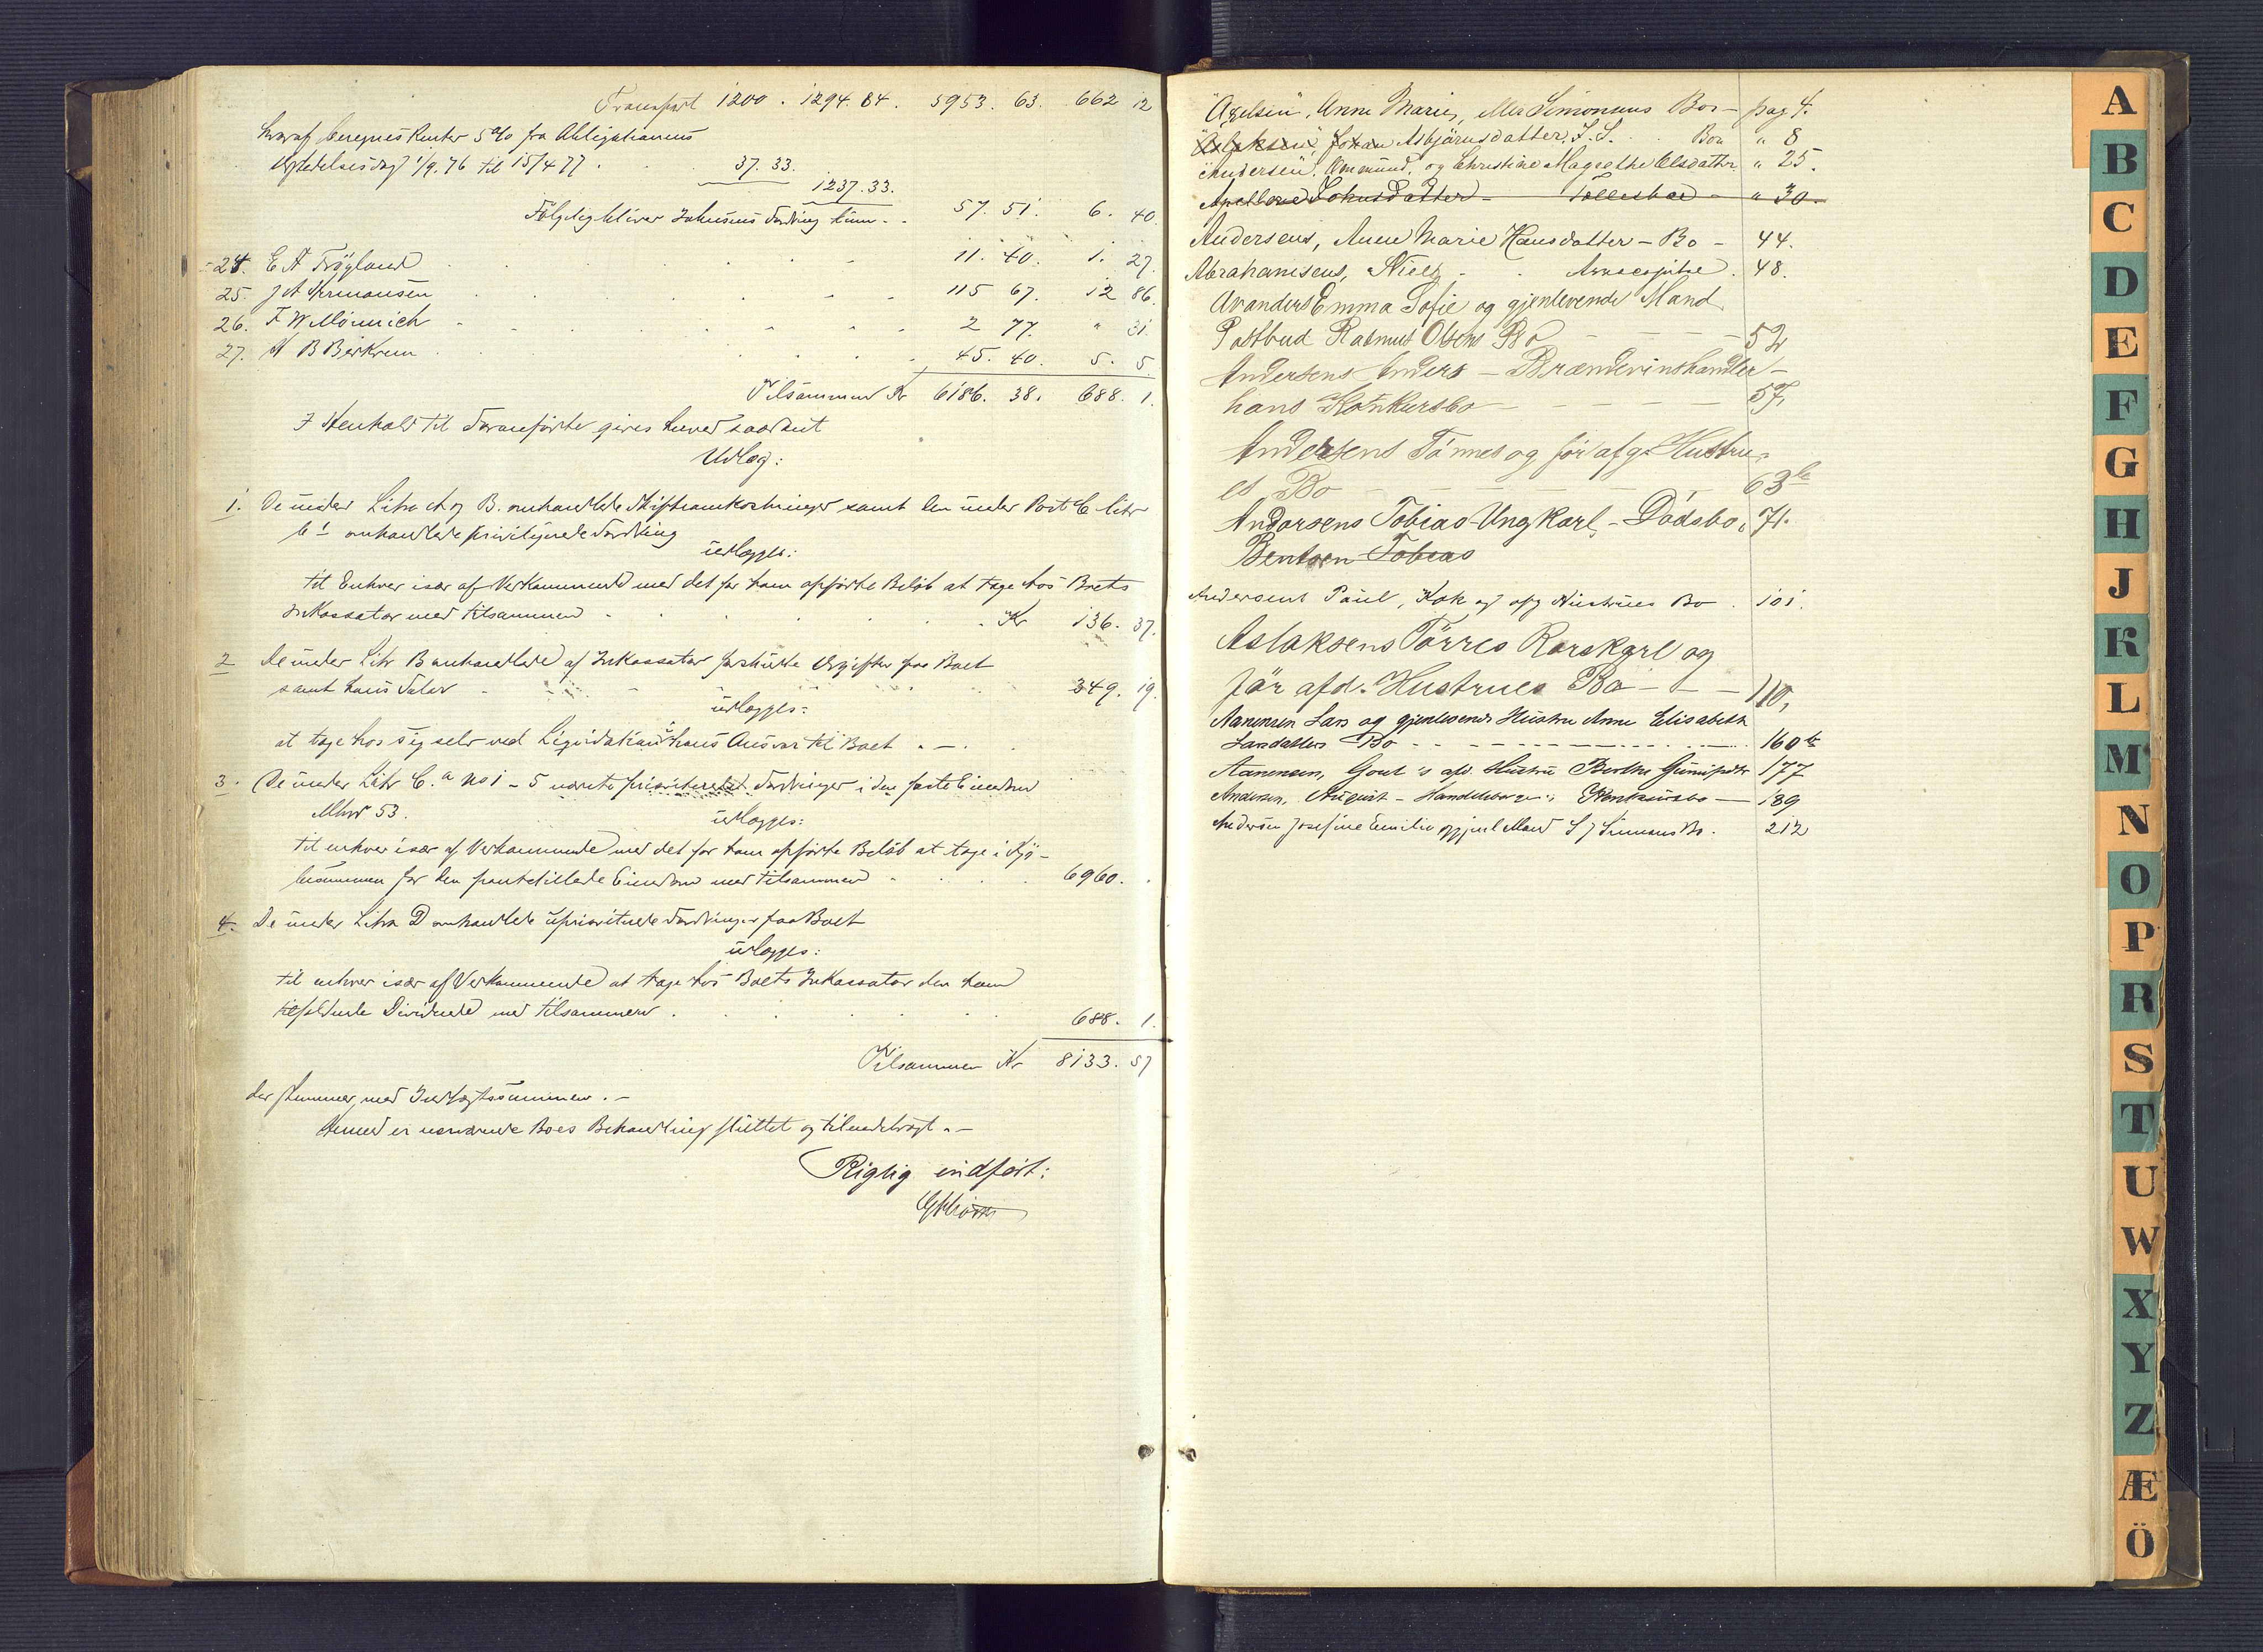 Transport 1200. 1294. 84. 5953. 63. 662 12
hvoraf beregnes Renter 5 % fra Obligationens
Udstedelsesdag 1/9. 76 til 15/4 77. 37. 33.
1237. 33.
Følgelig bliver Johnsens Fordring kun 57. 51. 6. 40.
24. E A Tröyland 11. 40. 1. 27.
25. J A Hermansen 115 67. 12 86.
26. F W Mönnich 2 77. " 31.
27. A B Birkrem 45. 40. 5. 5.
Tilsammen Kr 6186. 38. 688. 1.
I Henhold til Foranførte gives herved saadant
Udlæg:
1. De under Litra A og B. omhandlede Skifteomkostninger samt den under Post C litr
b 1 omhandlede privilegerede Fordring
udlægges:
til Enhver især af Vedkommende med det for ham opførte Beløb at tage hos Boets
Inkassator med tilsammen Kr 136. 37.
2 De under Litr B omhandlede af Inkassator forskudte Udgifter for Boet
samt hans Salær 349. 19.
udlægges:
at tage hos sig selv ved Liqvidation i hans Ansvar til Boet. -
3. De under Litr C. a No 1 - 5 nævnte prioriterede Fordringer i den faste Eiendom
Mno 53.
udlægges:
til enhver især af Vedkommende med det for ham opførte Beløb at tage i Kjö-
besummen for den pantstillede Eiendom med tilsammen 6960.
4. De under Litra D omhandlede upriviterede Fordringer paa Boet
udlægges:
til enhver især af Vedkommende at tage hos Boets Inkassator den ham
tilfaldende Dividende med tilsammen. 688. 1.
Tilsammen Kr 8133. 57
der stemmer med Indtægtssummen. -
Hermed er nærværende Boes Behandling sluttet og tilendebragt. -
Rigtig indført:
"Axelsen", Anne Marie, Mlle Simonsens Bo - pag 4.
"Aslaksen", Johan Asbjörnsdatter, I. S. Bo " 8
"Andersen", Ommund, og Christine Magrethe Olsdatter " 25.
Apellone Johnsdatter - Tollesboe - " 30.
Andersens, Anne Marie Hansdatter - Bo - 44.
Abrahamsens, Niels - Arvespitze. 48.
Avanders Emma Sofie og gjenlevende Mand
Postbud Rasmus Olsens Bo 52
Andersens Anders - Brændevinshandler -
hans Konkursbo 57,
Andersens Tönnes og för afg. Hustru-
es Bo 63 b
Andorsens Tobias Ungkarl - Dödsbo, 71.
Bentsen Tobias
Andersens Paul, Kok og afg Hustrues Bo. 101.
Aslaksens Törres Rorskarl og
för afd. Hustrues Bo - 110,
Aanensen Lars og gjenlevende Hustru Anne Elisabeth
Larsdatters Bo 160 b
Aanensen, Gout's afd. Hustru Berthe Gunisdtr 177
Andersen, August - Handelsborger: Konkursbo - 189
Andersen Josefine Emilie og gjenl Mand S J Simens Bo. 212
A
B
C
D
E
F
G
H
J
K
L
M
N
O
P
R
S
T
U
W
X
Y
Z
Æ
Ö